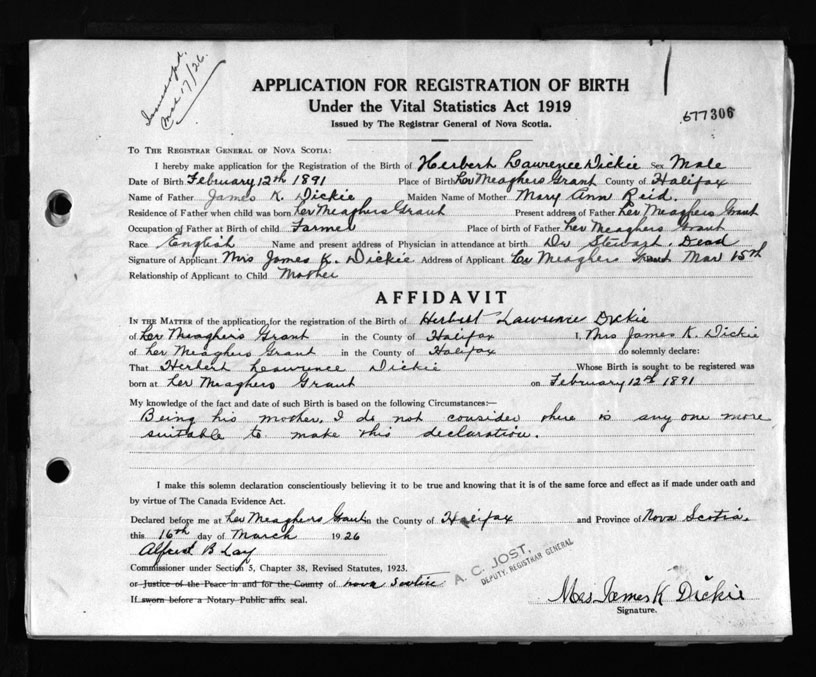 Mar 17/26.
APPLICATION FOR REGISTRATION OF BIRTH
Under the Vital Statistics Act 1919
Issued by The Registrar General of Nova Scotia.
677306
To The Registrar General of Nova Scotia:
I hereby make application for the Registration of the Birth of Herbert Lawrence Dickie Sex Male
Date of Birth February 12th 1891 Place of Birth Lr Meaghers Grant County of Halifax
Name of Father James K. Dickie Maiden Name of Mother Mary Ann Reid.
Residence of Father when child was born Lr Meaghers Grant Present address of Father Lr Meaghers Grant
Occupation of Father at Birth of child Farmer Place of birth of Father Lr Meaghers Grant
Race English Name and present address of Physician in attendance at birth Dr Stewart. Dead
Signature of Applicant Mrs James K. Dickie Address of Applicant Lr Meaghers Grant Mar 15th
Relationship of Applicant to Child Mother
AFFIDAVIT
In the Matter of the application for the registration of the Birth of Herbert Lawrence Dickie
of Lr Meaghers Grant in the County of Halifax I, Mrs James K. Dickie
of Lr Meaghers Grant in the County of Halifax do solemnly declare:
That Herbert Lawrence Dickie Whose Birth is sought to be registered was
born at Lr Meaghers Grant on February 12th 1891
My knowledge of the fact and date of such Birth is based on the following Circumstances:—
Being his mother, I do not consider there is any one more
suitable to make this declaration.
I make this solemn declaration conscientiously believing it to be true and knowing that it is of the same force and effect as if made under oath and
by virtue of The Canada Evidence Act.
Declared before me at Lr Meaghers Grant in the County of Halifax and Province of Nova Scotia.
this 16th day of March 1926
Alfred B Lay
Commissioner under Section 5, Chapter 38, Revised Statutes, 1923.
or Justice of the Peace in and for the County of Nova Scotia
If sworn before a Notary Public affix seal.
A. C. JOST,
DEPUTY REGISTRAR GENERAL
Mrs James K Dickie
Signature.